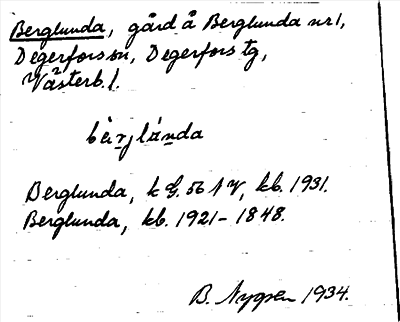 Berglunda, gård å Berglunda nr 1,
Degerfors sn, Degerfors tg,
Västerb. l.
Berglunda, k G. 56 NV, kb. 1931.
Berglunda, kb. 1921-1848.
B. Nygren 1934.